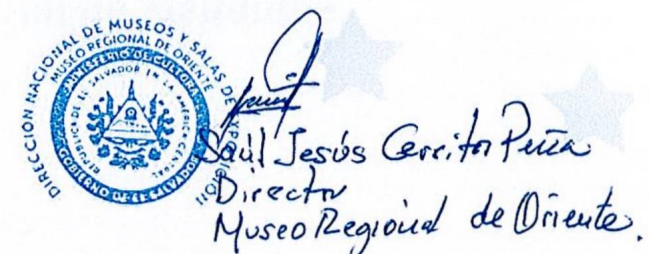 DIRECCIÓN NACIONAL DE MUSEOS Y SALAS DE EXPOSICIÓN
MUSEO REGIONAL DE ORIENTE
MINISTERIO DE CULTURA
REPUBLICA DE EL SALVADOR EN LA AMERICA CENTRAL
GOBIERNO DE EL SALVADOR
Saúl Jesús Cerritos Peña
Director
Museo Regional de Oriente.